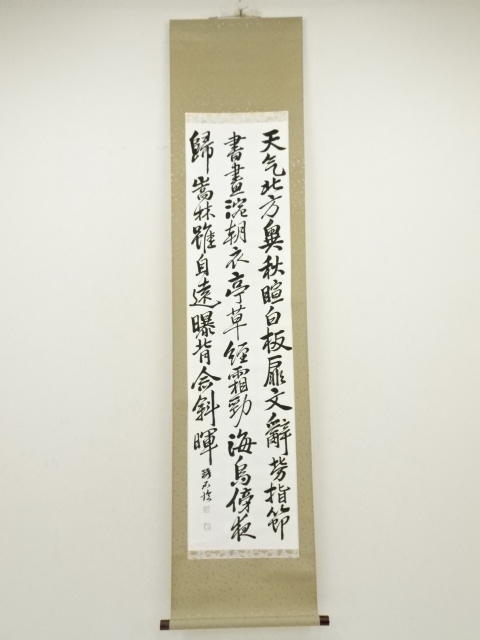 天气北方奥秋暄白板扉文辭勞指節
書畫浣朝衣亭草經霜勁海鳥傍夜
歸嵩林雖自遠曝背念斜暉